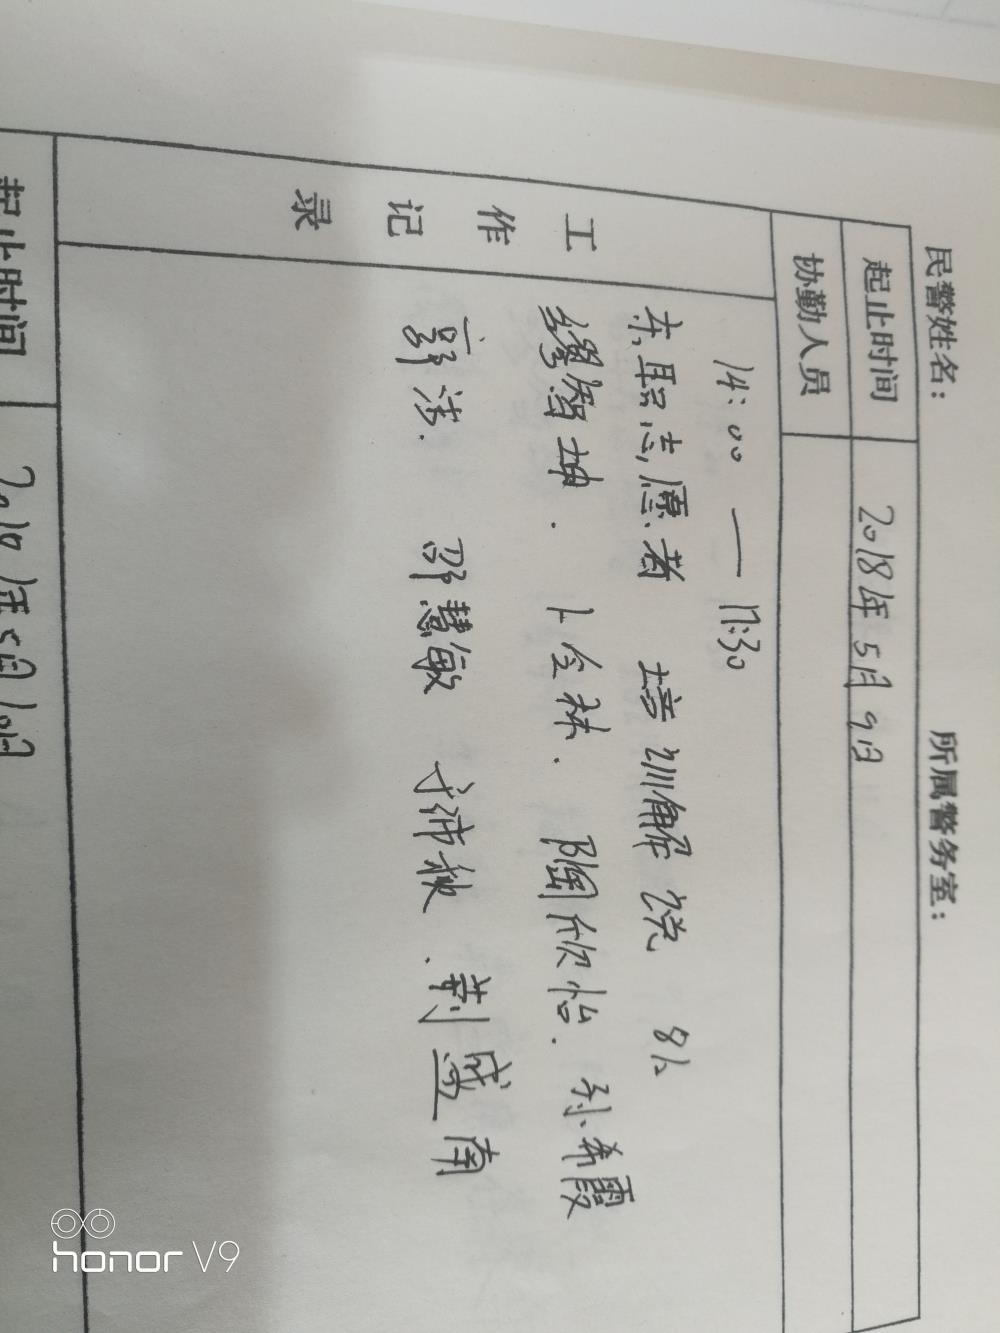 民警姓名： 所属警务室：
起止时间 2018年5月9日
协勤人员
工作记录
14:00 — 17:30
志愿者 培训解说 8人
缪智坤. 卜令林. 陶欣怡. 孙希霞
郭涛. 邵慧敏 于沛秋. 荆盛南
起止时间 2018年5月10日
honor V9